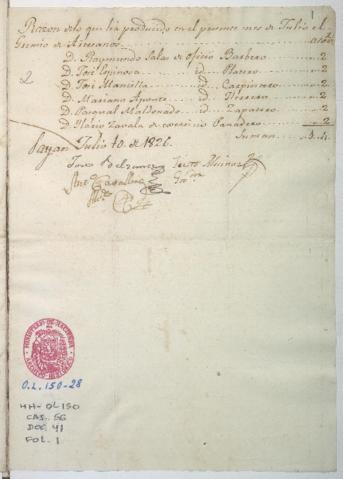 1
Razon de lo que ha producido en el presente mes de Julio el
Gremio de Artesanos
D. Raymundo Salas de oficio Barbero 2
D. José Espinosa id Platero 2
D. José Mancilla id Carpintero 2
D. Mariano Aponte id Herrero 2
D. Pasqual Maldonado id Zapatero 2
D. Zavala de comercio Panadero 2
2
Suman
Sayan Julio 10 de 1826.
MINISTERIO DE HACIENDA
ARCHIVO HISTORICO
O.L. 150-28
HH-OL 150
CAJ. 56
DOC. 41
FOL. 1